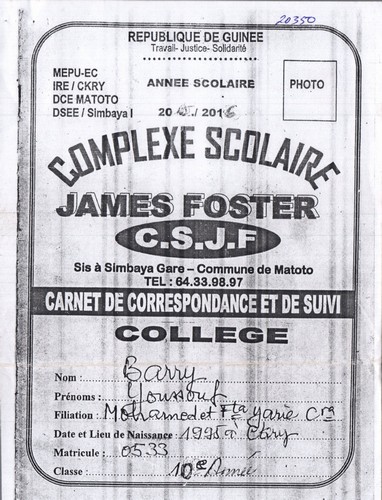 20350
REPUBLIQUE DE GUINEE
Travail- Justice- Solidarité
MEPU-EC
IRE / CKRY
DCE MATOTO
DSEE / Simbaya I
ANNEE SCOLAIRE
20 15 / 2016
PHOTO
COMPLEXE SCOLAIRE
JAMES FOSTER
C.S.J.F
Sis à Simbaya Gare – Commune de Matoto
TEL : 64.33.98.97
CARNET DE CORRESPONDANCE ET DE SUIVI
COLLEGE
Nom : Barry
Prénoms : Youssouf
Filiation : Mohamed et Fta Yarie Cra
Date et Lieu de Naissance : 1995 à Ckry
Matricule : 0533
Classe : 10e Année